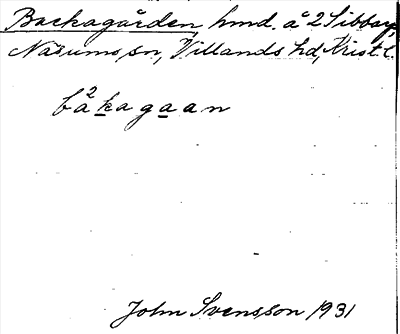 Backagården hmd. å 2 Sibbarp,
Näsums sn, Villands hd, Krist. l.
bå²kagaan
John Svensson 1931